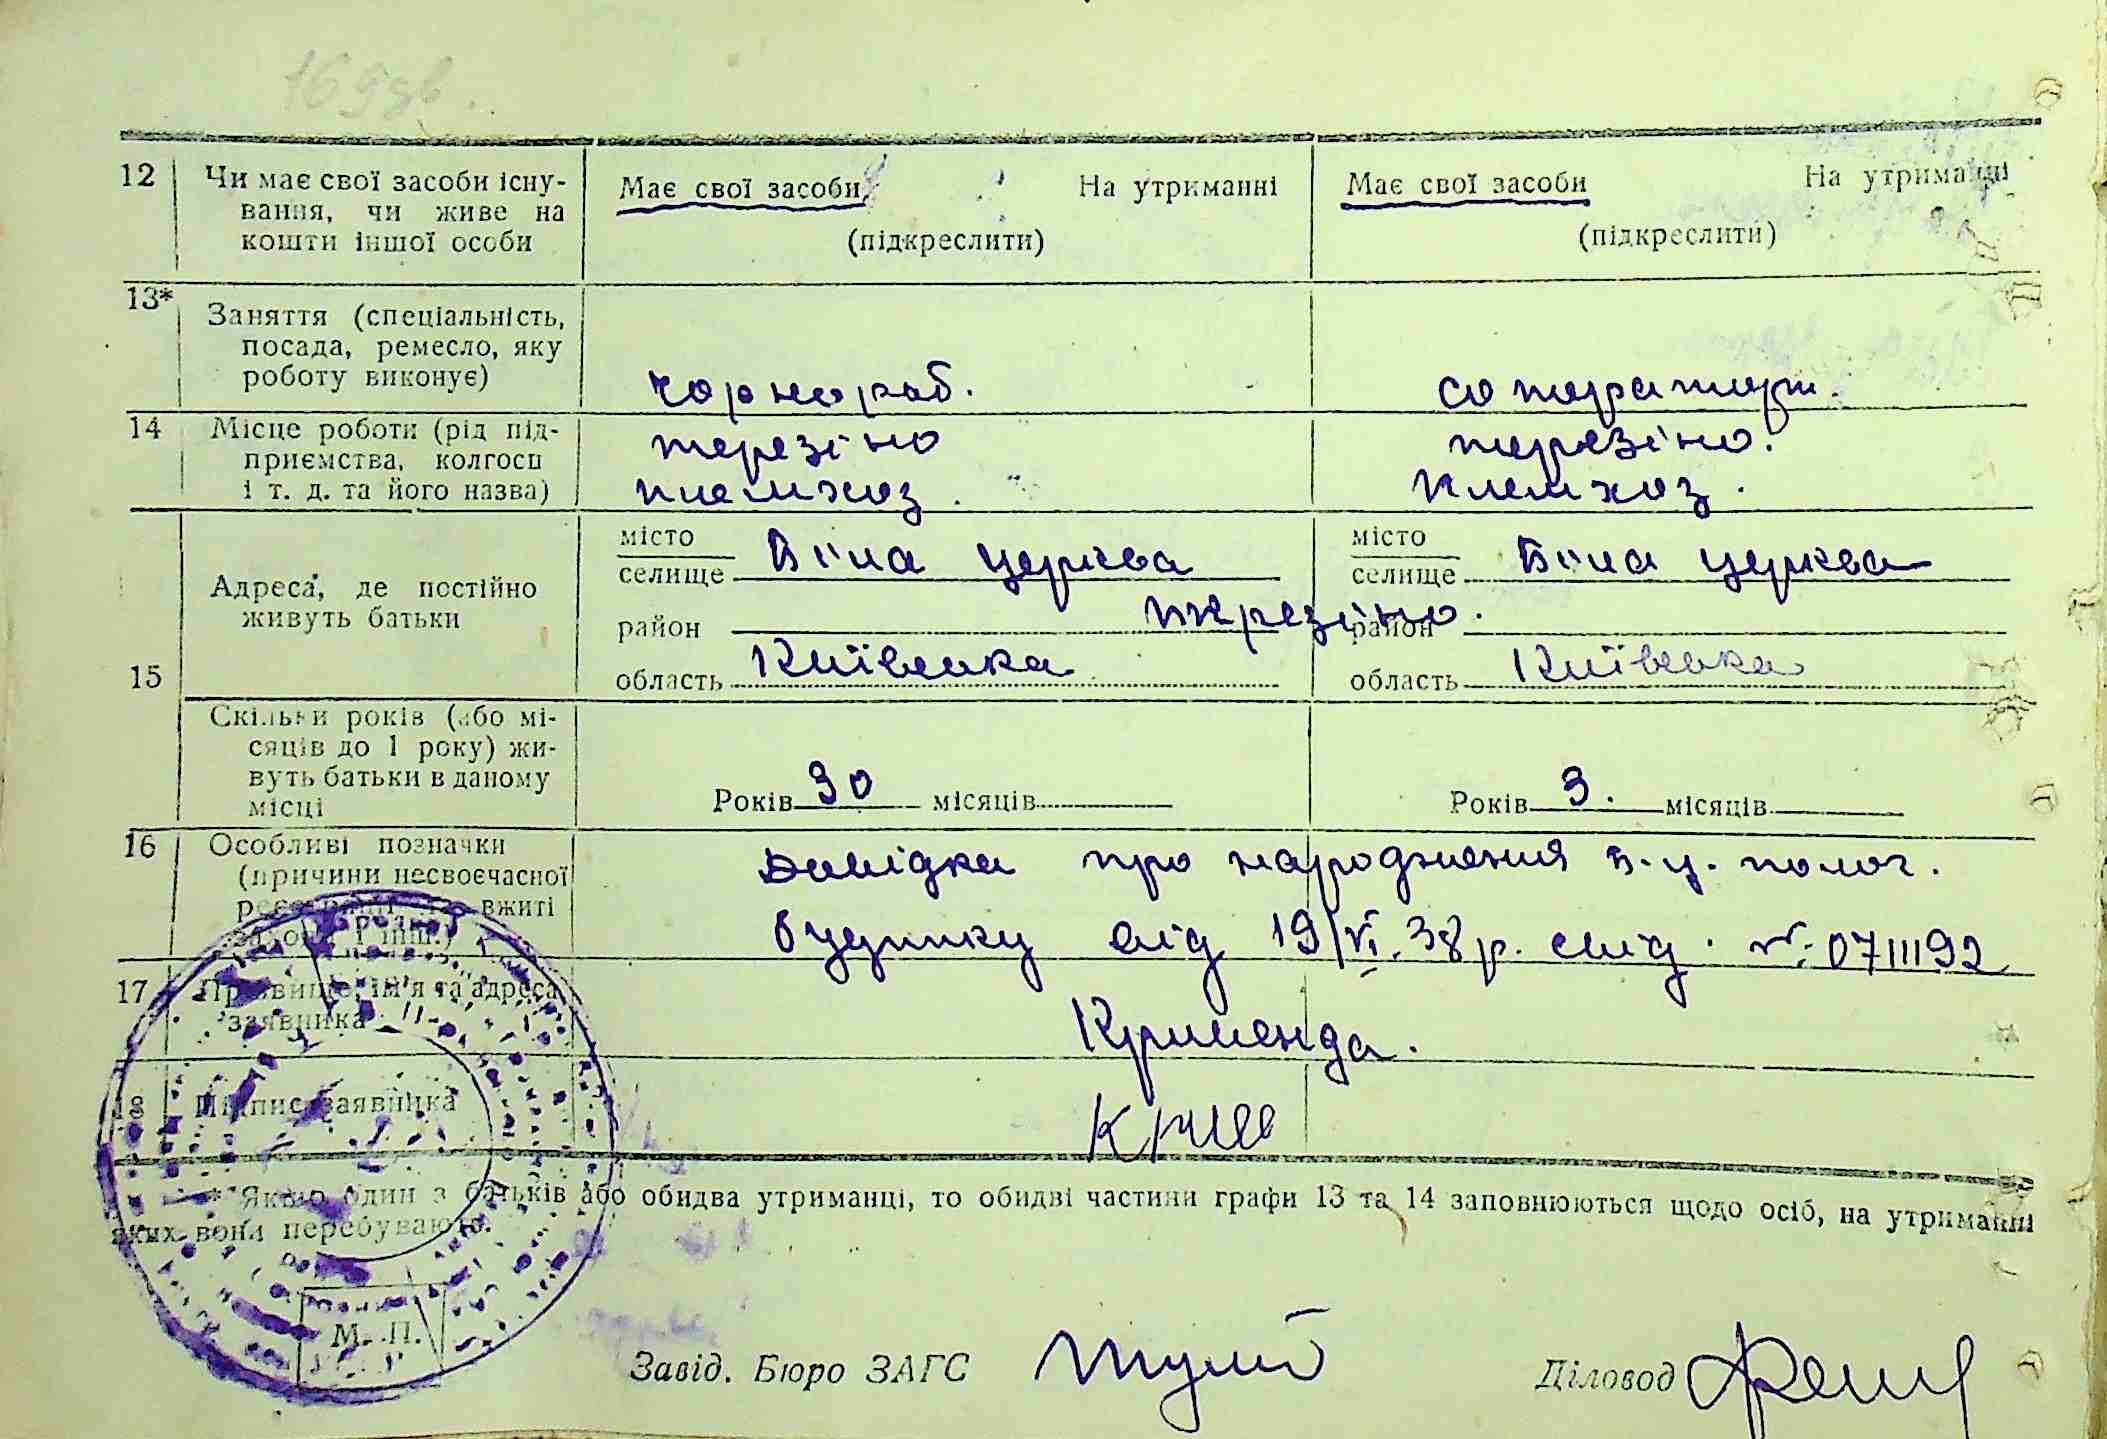 169зв.
12 Чи має свої засоби існу- Має свої засоби На утриманні Має свої засоби На утриманні
вання, чи живе на
кошти іншої особи (підкреслити) (підкреслити)
13* Заняття (спеціальність,
посада, ремесло, яку
роботу виконує) чорнораб.
14 Місце роботи (рід під- терезіно терезіно.
приємства, колгосп
і т. д. та його назва) племхоз. племхоз.
місто місто
селище Біла церква селище Біла церква
Адреса, де постійно
живуть батьки район терезіно. район
15 область Київська область Київська
Скільки років (або мі-
сяців до 1 року) жи-
вуть батьки в даному
місці Років 30 місяців Років 3. місяців
16 Особливі позначки Довідка про народження Б.Ц. полог.
(причини несвоєчасної
вжиті будинку від 19/VI.38р. свід. №: 0711192
17 Прізвище, ім'я та адреса
заявника Кременда.
18 Підпис заявника
* Якщо один з батьків або обидва утриманці, то обидві частини графи 13 та 14 заповнюються щодо осіб, на утриманні
яких вони перебувають.
М. П.
Завід. Бюро ЗАГС Діловод